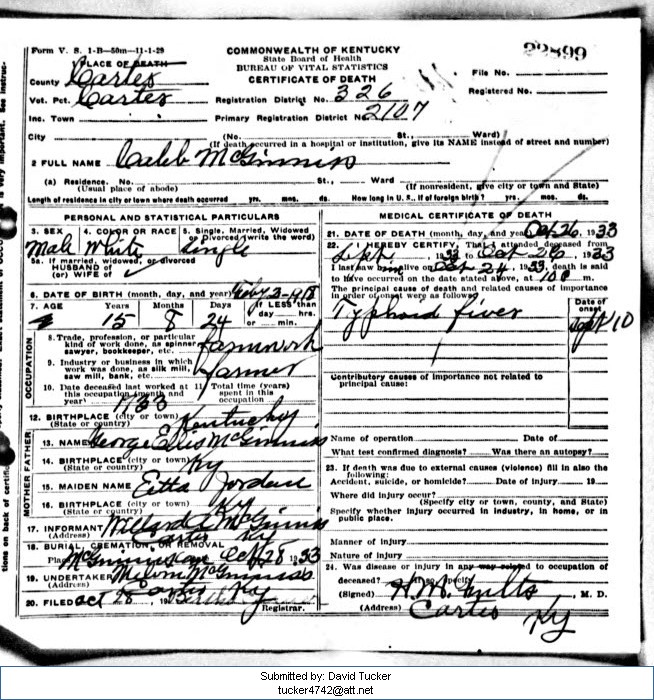 Form V. S. 1-B—50m—11-1-29
PLACE OF DEATH
County Carter
Vot. Pct. Carter
Inc. Town
City
COMMONWEALTH OF KENTUCKY
State Board of Health
BUREAU OF VITAL STATISTICS
CERTIFICATE OF DEATH
Registration District No. 326
Primary Registration District No. 2107
22899
File No.
Registered No.
(No. St., Ward)
(If death occurred in a hospital or institution, give its NAME instead of street and number)
2 FULL NAME Caleb McGinniss
(a) Residence. No. St., Ward
(Usual place of abode) (If nonresident, give city or town and State)
Length of residence in city or town where death occurred yrs. mos. ds. How long in U. S., if of foreign birth? yrs. mos. ds.
PERSONAL AND STATISTICAL PARTICULARS
3. SEX 4. COLOR OR RACE 5. Single, Married, Widowed
or Divorced (write the word)
Male White Single
5a. If married, widowed, or divorced
HUSBAND of
(or) WIFE of
6. DATE OF BIRTH (month, day, and year) Feby 2-1918
7. AGE Years Months Days If LESS than
15 8 24 day hrs.
or min.
OCCUPATION
8. Trade, profession, or particular
kind of work done, as spinner,
sawyer, bookkeeper, etc. farmwork
9. Industry or business in which
work was done, as silk mill,
saw mill, bank, etc. farmer
10. Date deceased last worked at 11. Total time (years)
this occupation (month and spent in this
year) 1933 occupation
12. BIRTHPLACE (city or town)
(State or country) Kentucky
MOTHER FATHER
13. NAME George Ellis McGinniss
14. BIRTHPLACE (city or town)
(State or country) Ky
15. MAIDEN NAME Etta Jordan
16. BIRTHPLACE (city or town)
(State or country) Ky
17. INFORMANT Willard McGinniss
(Address) Carter Ky
18. BURIAL, CREMATION, OR REMOVAL
Place McGinniss Date Oct 28 1933
19. UNDERTAKER Melvin McGinniss
(Address) Carter Ky
20. FILED Oct 28, 19
Registrar.
MEDICAL CERTIFICATE OF DEATH
21. DATE OF DEATH (month, day, and year) Oct 26, 1933
22. I HEREBY CERTIFY, That I attended deceased from
Sept 1933 to Oct 26, 1933
I last saw him alive on Oct 24, 1933, death is said
to have occurred on the date stated above, at m.
The principal cause of death and related causes of importance
in order of onset were as follows:
Date of
onset
Typhoid fiver Sept 10
Contributory causes of importance not related to
principal cause:
Name of operation Date of
What test confirmed diagnosis? Was there an autopsy?
23. If death was due to external causes (violence) fill in also the
following:
Accident, suicide, or homicide? Date of injury 19
Where did injury occur?
(Specify city or town, county, and State)
Specify whether injury occurred in industry, in home, or in
public place.
Manner of injury
Nature of injury
24. Was disease or injury in any way related to occupation of
deceased? If so, specify
(Signed) H.M. M. D.
(Address) Carter Ky
Submitted by: David Tucker
tucker4742@att.net